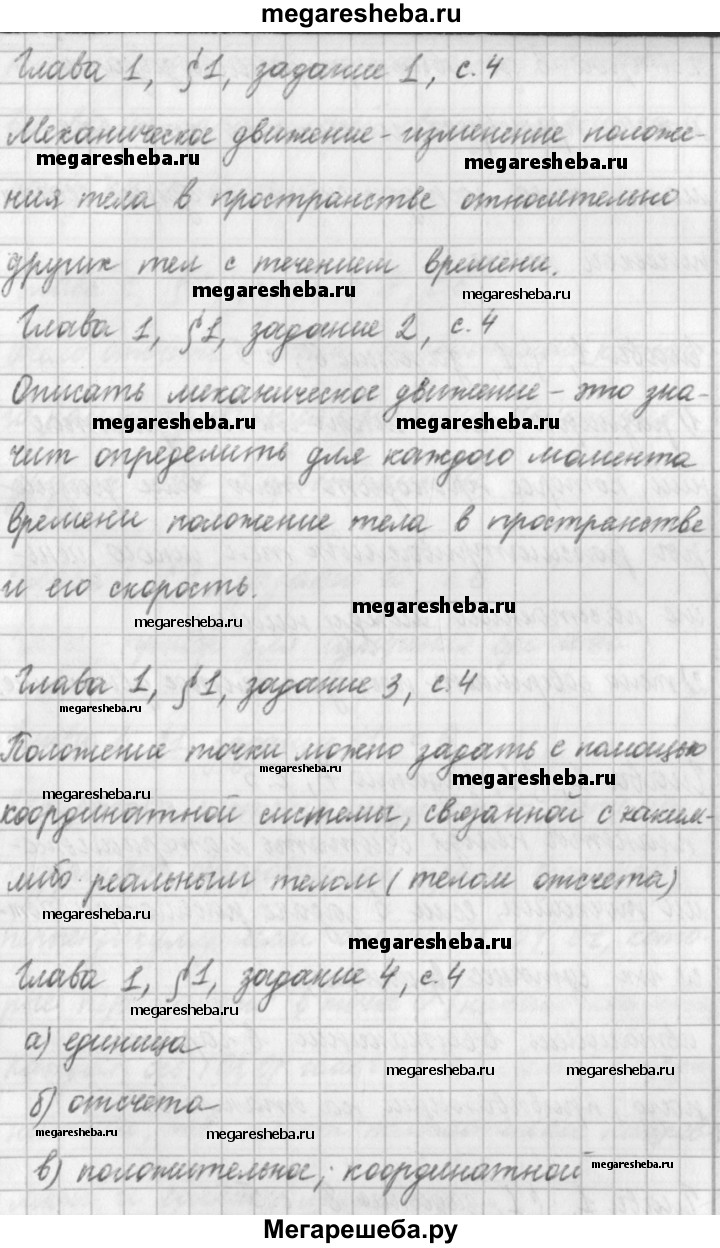 megaresheba.ru
Глава 1, §1, задание 1, с. 4
Механическое движение - изменение положе-
megaresheba.ru megaresheba.ru
ния тела в пространстве относительно
других тел с течением времени.
megaresheba.ru megaresheba.ru
Глава 1, §1, задание 2, с. 4
Описать механическое движение - это зна-
megaresheba.ru megaresheba.ru
чит определить для каждого момента
времени положение тела в пространстве
и его скорость.
megaresheba.ru megaresheba.ru
Глава 1, §1, задание 3, с. 4
megaresheba.ru
Положение точки можно задать с помощью
megaresheba.ru megaresheba.ru megaresheba.ru
координатной системы, связанной с каким-
либо реальным телом (телом отсчета)
megaresheba.ru
megaresheba.ru
Глава 1, §1, задание 4, с. 4
megaresheba.ru
а) единица
megaresheba.ru megaresheba.ru
б) отсчета
megaresheba.ru megaresheba.ru
в) положительное; координатной
megaresheba.ru
Мегарешеба.ру